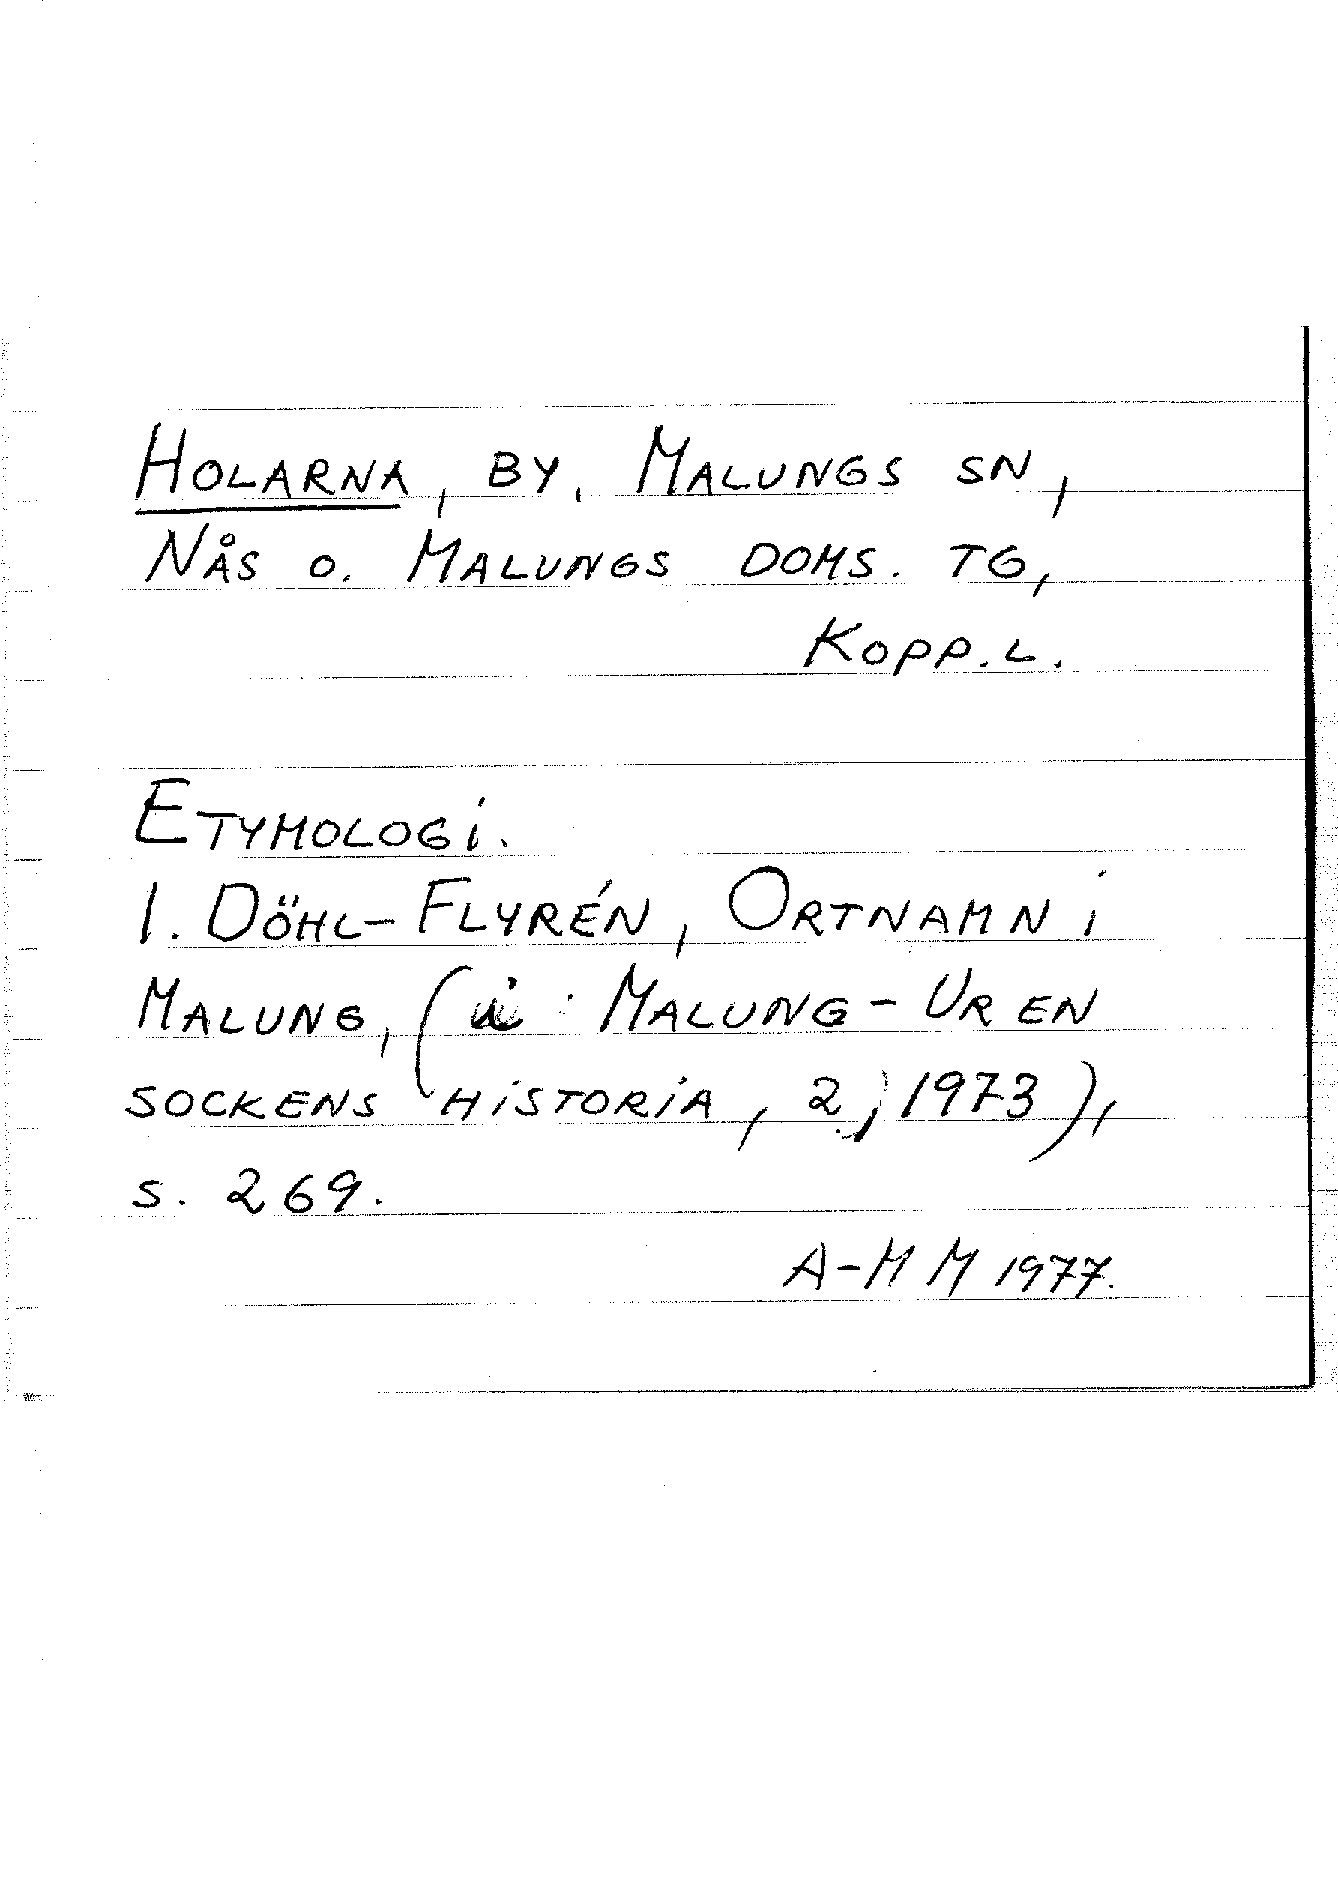 HOLARNA, BY, MALUNGS SN,
NÅS O. MALUNGS DOMS. TG,
KOPP. L.
ETYMOLOGI.
I. DÖHL-FLYRÉN, ORTNAMN i
MALUNG, (i MALUNG - UR EN
SOCKENS HISTORIA, 2, 1973),
S. 269.
A-M M 1977.